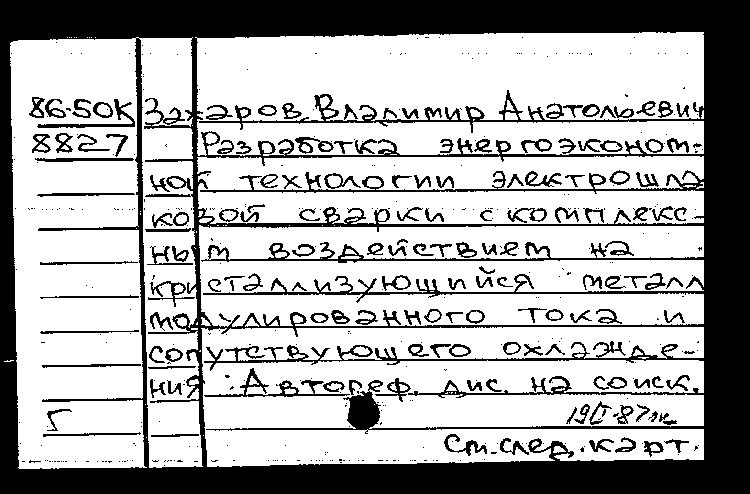 86-50К Захаров, Владимир Анатольевич
8827 Разработка энергоэконом-
ной технологии электрошла
ковой сварки с комплекс-
ным воздействием на
кристаллизующийся металл
модулированного тока и
сопутствующего охлажде-
ния : Автореф. дис. на соиск.
Г
См. след. карт.